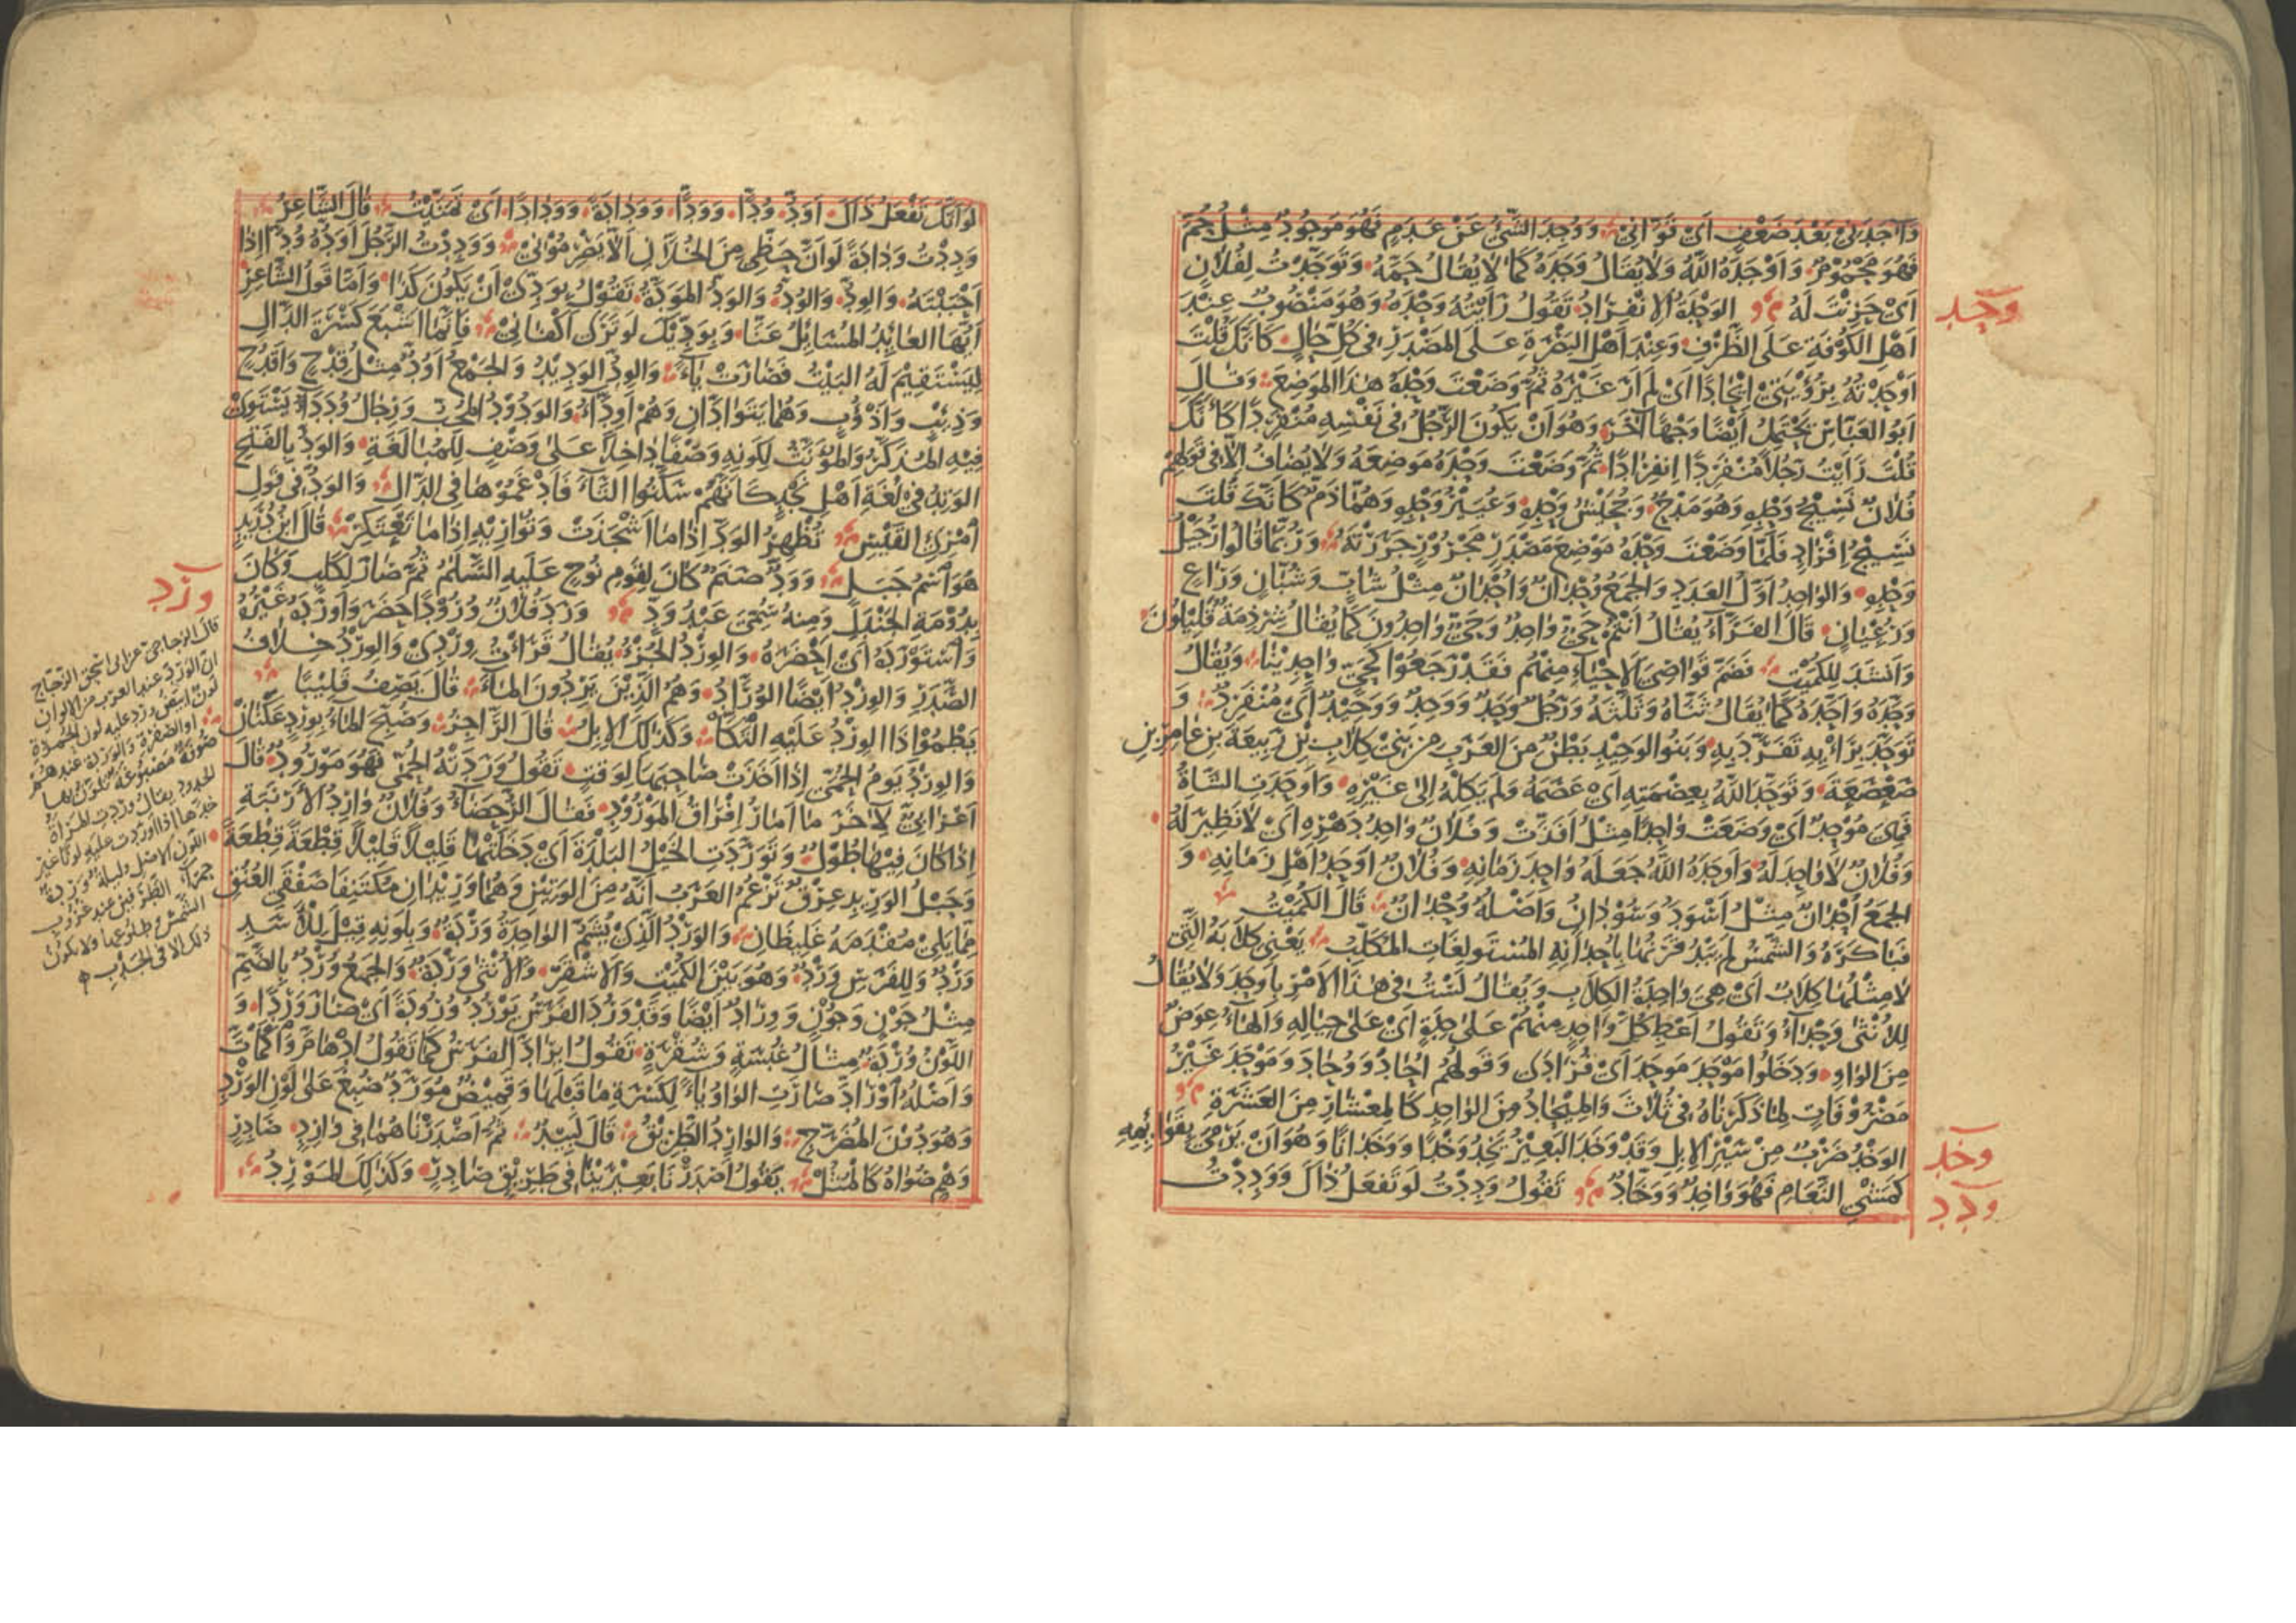 وَآجَدَنِي بَعْدَ ضَعْفٍ أَيْ قَوَّانِي وَوُجِدَ الشَّيْءُ عَنْ عَدَمٍ فَهُوَ مَوْجُودٌ مِثْلُ حُمَّ
فَهُوَ مَحْمُومٌ وَأَوْجَدَهُ اللّٰهُ وَلَا يُقَالُ وَجَدَهُ كَمَا لَا يُقَالُ حَمَّهُ وَتَوَجَّدْتُ لِفُلَانٍ
وحد
أَيْ حَزِنْتُ لَهُ الوَحْدَةُ الِانْفِرَادُ تَقُولُ رَأَيْتُهُ وَحْدَهُ وَهُوَ مَنْصُوبٌ عِنْدَ
أَهْلِ الكُوفَةِ عَلَى الظَّرْفِ وَعِنْدَ أَهْلِ البَصْرَةِ عَلَى المَصْدَرِ فِي كُلِّ حَالٍ كَأَنَّكَ قُلْتَ
أَوْحَدْتُهُ بِرُؤْيَتِي إِيحَادًا أَيْ لَمْ أَرَ غَيْرَهُ ثُمَّ وَضَعْتَ وَحْدَهُ هٰذَا المَوْضِعَ وَقَالَ
أَبُو العَبَّاسِ يَحْتَمِلُ أَيْضًا وَجْهًا آخَرَ وَهُوَ أَنْ يَكُونَ الرَّجُلُ فِي نَفْسِهِ مُنْفَرِدًا كَأَنَّكَ
قُلْتَ رَأَيْتُ رَجُلًا مُنْفَرِدًا انْفِرَادًا ثُمَّ وَضَعْتَ وَحْدَهُ مَوْضِعَهُ وَلَا يُضَافُ إِلَّا فِي قَوْلِهِمْ
فُلَانٌ نَسِيجُ وَحْدِهِ وَهُوَ مَدْحٌ وَجُحَيْشُ وَحْدِهِ وَعُيَيْرُ وَحْدِهِ وَهُمَا ذَمٌّ كَأَنَّكَ قُلْتَ
نَسِيجُ إِفْرَادٍ فَلَمَّا وَضَعْتَ وَحْدَهُ مَوْضِعَ مَصْدَرٍ مَجْرُورٍ جَرَرْتَهُ وَرُبَّمَا قَالُوا رُجَيْلُ
وَحْدِهِ وَالوَاحِدُ أَوَّلُ العَدَدِ وَالجَمْعُ وُحْدَانٌ وَأُحْدَانٌ مِثْلُ شَابٍّ وَشُبَّانٍ وَرَاعٍ
وَرُعْيَانٍ قَالَ الفَرَّاءُ يُقَالُ أَنْتُمْ حَيٌّ وَاحِدٌ وَحَيٌّ وَاحِدُونَ كَمَا يُقَالُ شِرْذِمَةٌ قَلِيلُونَ
وَأَنْشَدَ لِلكُمَيْتِ فَضَمَّ قَوَاصِيَ الأَحْيَاءِ مِنْهُمْ فَقَدْ رَجَعُوا كَحَيٍّ وَاحِدِينَا وَيُقَالُ
وَحَّدَهُ وَأَحَّدَهُ كَمَا يُقَالُ ثَنَّاهُ وَثَلَّثَهُ وَرَجُلٌ وَحَدٌ وَوَحِدٌ وَوَحِيدٌ أَيْ مُنْفَرِدٌ وَ
تَوَحَّدَ بِرَأْيِهِ تَفَرَّدَ بِهِ وَبَنُو الوَحِيدِ بَطْنٌ مِنَ العَرَبِ مِنْ بَنِي كِلَابِ بْنِ رَبِيعَةَ بْنِ عَامِرِ بْنِ
صَعْصَعَةَ وَتَوَحَّدَهُ اللّٰهُ بِعِصْمَتِهِ أَيْ عَصَمَهُ وَلَمْ يَكِلْهُ إِلَى غَيْرِهِ وَأَوْحَدَتِ الشَّاةُ
فَهِيَ مُوحِدٌ أَيْ وَضَعَتْ وَاحِدًا مِثْلُ أَفَذَّتْ وَفُلَانٌ وَاحِدُ دَهْرِهِ أَيْ لَا نَظِيرَ لَهُ
وَفُلَانٌ لَا وَاحِدَ لَهُ وَأَوْحَدَهُ اللّٰهُ جَعَلَهُ وَاحِدَ زَمَانِهِ وَفُلَانٌ أَوْحَدُ أَهْلِ زَمَانِهِ وَ
الجَمْعُ أُحْدَانٌ مِثْلُ أَسْوَدَ وَسُودَانٍ وَأَصْلُهُ وُحْدَانٌ قَالَ الكُمَيْتُ
فَبَاكَرَهُ وَالشَّمْسُ لَمْ يَبْدُ قَرْنُهَا بِأُحْدَانِهِ المُسْتَوْلِغَاتِ المُكَلِّبُ يَعْنِي كِلَابَهُ الَّتِي
لَا مِثْلُهَا كِلَابٌ أَيْ هِيَ وَاحِدَةُ الكِلَابِ وَيُقَالُ لَسْتُ فِي هٰذَا الأَمْرِ بِأَوْحَدَ وَلَا يُقَالُ
لِلأُنْثَى وَحْدَاءُ وَتَقُولُ أَعْطِ كُلَّ وَاحِدٍ مِنْهُمْ عَلَى حِدَةٍ أَيْ عَلَى حِيَالِهِ وَالهَاءُ عِوَضٌ
مِنَ الوَاوِ وَدَخَلُوا مَوْحَدَ مَوْحَدَ أَيْ فُرَادَى وَقَوْلُهُمْ أُحَادَ وَوُحَادَ وَمَوْحَدَ غَيْرُ
مَصْرُوفَاتٍ لِمَا ذَكَرْنَاهُ فِي ثُلَاثَ وَالمِيحَادُ مِنَ الوَاحِدِ كَالمِعْشَارِ مِنَ العَشَرَةِ
وخد
الوَخْدُ ضَرْبٌ مِنْ سَيْرِ الإِبِلِ وَقَدْ وَخَدَ البَعِيرُ يَخِدُ وَخْدًا وَوَخَدَانًا وَهُوَ أَنْ يَرْمِيَ بِقَوَائِمِهِ
ودد
كَمَشْيِ النَّعَامِ فَهُوَ وَاخِدٌ وَوَخَّادٌ تَقُولُ وَدِدْتُ لَوْ تَفْعَلُ ذَاكَ وَوَدِدْتُ
لَوْ أَنَّكَ تَفْعَلُ ذَاكَ أَوَدُّ وُدًّا وَوَدًّا وَوَدَادَةً وَوِدَادًا أَيْ تَمَنَّيْتُ قَالَ الشَّاعِرُ
وَدِدْتُ وَدَادَةً لَوْ أَنَّ حَظِّي مِنَ الخُلَّانِ أَلَّا يَصْرِمُونِي وَوَدِدْتُ الرَّجُلَ أَوَدُّهُ وُدًّا إِذَا
أَحْبَبْتَهُ وَالوِدُّ وَالوُدُّ وَالوَدُّ المَوَدَّةُ تَقُولُ بِوُدِّي أَنْ يَكُونَ كَذَا وَأَمَّا قَوْلُ الشَّاعِرِ
أَيُّهَا العَائِدُ المُسَائِلُ عَنَّا وَبِوُدِّيكَ لَوْ تَرَى أَكْفَانِي فَإِنَّمَا أَشْبَعَ كَسْرَةَ الدَّالِ
لِيَسْتَقِيمَ لَهُ البَيْتُ فَصَارَتْ يَاءً وَالوِدُّ الوَدِيدُ وَالجَمْعُ أَوُدٌّ مِثْلُ قِدْحٍ وَأَقْدُحٍ
وَذِئْبٍ وَأَذْؤُبٍ وَهُمَا يَتَوَادَّانِ وَهُمْ أَوِدَّاءُ وَالوَدُودُ المُحِبُّ وَرِجَالٌ وُدَدَاءُ يَسْتَوِي
فِيهِ المُذَكَّرُ وَالمُؤَنَّثُ لِكَوْنِهِ وَصْفًا دَاخِلًا عَلَى وَصْفٍ لِلمُبَالَغَةِ وَالوَدُّ بِالفَتْحِ
الوَتِدُ فِي لُغَةِ أَهْلِ نَجْدٍ كَأَنَّهُمْ سَكَّنُوا التَّاءَ فَأَدْغَمُوهَا فِي الدَّالِ وَالوَدُّ فِي قَوْلِ
امْرِئِ القَيْسِ تُظْهِرُ الوَدَّ إِذَا مَا أَشْجَذَتْ وَتُوَارِيهِ إِذَا مَا تَعْتَكِرْ قَالَ ابْنُ دُرَيْدٍ
هُوَ اسْمُ جَبَلٍ وَوَدٌّ صَنَمٌ كَانَ لِقَوْمِ نُوحٍ عَلَيْهِ السَّلَمُ ثُمَّ صَارَ لِكَلْبٍ وَكَانَ
ورد
بِدُومَةِ الجَنْدَلِ وَمِنْهُ سُمِّيَ عَبْدُ وَدٍّ وَرَدَ فُلَانٌ وُرُودًا حَضَرَ وَأَوْرَدَهُ غَيْرُهُ
وَاسْتَوْرَدَهُ أَيْ أَحْضَرَهُ وَالوِرْدُ الجُزْءُ يُقَالُ قَرَأْتُ وِرْدِي وَالوِرْدُ خِلَافُ
الصَّدَرِ وَالوِرْدُ أَيْضًا الوُرَّادُ وَهُمُ الَّذِينَ يَرِدُونَ المَاءَ قَالَ يَصِفُ قَلِيبًا
يَطْمُو إِذَا الوِرْدُ عَلَيْهِ الْتَكَّا وَكَذٰلِكَ الإِبِلُ قَالَ الرَّاجِزُ وَصُبِّحَ المَاءُ بِوِرْدٍ عَكْنَانْ
وَالوِرْدُ يَوْمُ الحُمَّى إِذَا أَخَذَتْ صَاحِبَهَا لِوَقْتٍ تَقُولُ وَرَدَتْهُ الحُمَّى فَهُوَ مَوْرُودٌ قَالَ
أَعْرَابِيٌّ لِآخَرَ مَا أَمَارُ إِفْرَاقِ المَوْرُودِ فَقَالَ الرُّحَضَاءُ وَفُلَانٌ وَارِدُ الأَرْنَبَةِ
إِذَا كَانَ فِيهَا طُولٌ وَتَوَرَّدَتِ الخَيْلُ البَلْدَةَ أَيْ دَخَلَتْهَا قَلِيلًا قَلِيلًا قِطْعَةً قِطْعَةً
وَحَبْلُ الوَرِيدِ عِرْقٌ تَزْعُمُ العَرَبُ أَنَّهُ مِنَ الوَتِينِ وَهُمَا وَرِيدَانِ مُكْتَنِفَا صَفْقَيِ العُنُقِ
مِمَّا يَلِي مُقَدَّمَهُ غَلِيظَانِ وَالوَرْدُ الَّذِي يُشَمُّ الوَاحِدَةُ وَرْدَةٌ وَبِلَوْنِهِ قِيلَ لِلْأَسَدِ
وَرْدٌ وَلِلفَرَسِ وَرْدٌ وَهُوَ بَيْنَ الكُمَيْتِ وَالأَشْقَرِ وَالأُنْثَى وَرْدَةٌ وَالجَمْعُ وُرْدٌ بِالضَّمِّ
مِثْلُ جَوْنٍ وَجُونٍ وَوِرَادٌ أَيْضًا وَقَدْ وَرُدَ الفَرَسُ يَوْرُدُ وُرُودَةً أَيْ صَارَ وَرْدًا وَ
اللَّوْنُ وُرْدَةٌ مِثَالُ غُبْسَةٍ وَشُقْرَةٍ تَقُولُ ايرَادَّ الفَرَسُ كَمَا تَقُولُ ادْهَامَّ وَاكْمَاتَّ
وَأَصْلُهُ اوْرَادَّ صَارَتِ الوَاوُ يَاءً لِكَسْرَةِ مَا قَبْلَهَا وَقَمِيصٌ مُوَرَّدٌ صُبِغَ عَلَى لَوْنِ الوَرْدِ
وَهُوَ دُونَ المُضَرَّجِ وَالوَارِدُ الطَّرِيقُ قَالَ لَبِيدٌ ثُمَّ أَصْدَرْنَاهُمَا فِي وَارِدٍ صَادِرٍ
وَهْمٍ صُوَاهُ كَالمُثُلْ يَقُولُ أَصْدَرْنَا بَعِيرَيْنَا فِي طَرِيقٍ صَادِرٍ وَكَذٰلِكَ المَوْرِدُ
قال الزجاجي عزا لي اسحق الزجاج
ان الورد عند العرب من الالوان
لون ابيض ورد عليه لون الحمرة
او الصفرة والوردة عندهم
صوفة مصبوغة تلون بها
الخدود يقال وردت المراة
خدها اذا اوردت عليه لونا غير
اللون الاصل وليلة وردة
حمراء الطرفين عند غروب
الشمس وطلوعها ولا يكون
ذلك الا في الجدب